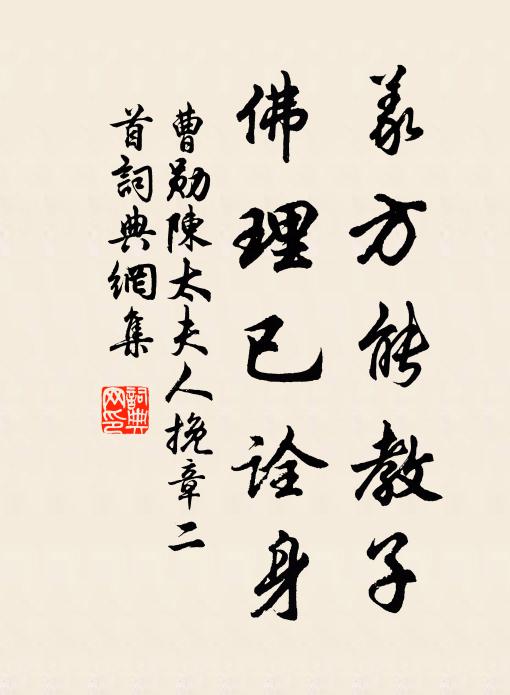 義方能教子
佛理已詮身
曹勛陳太夫人挽章二
首詞典網集
詞典
网印